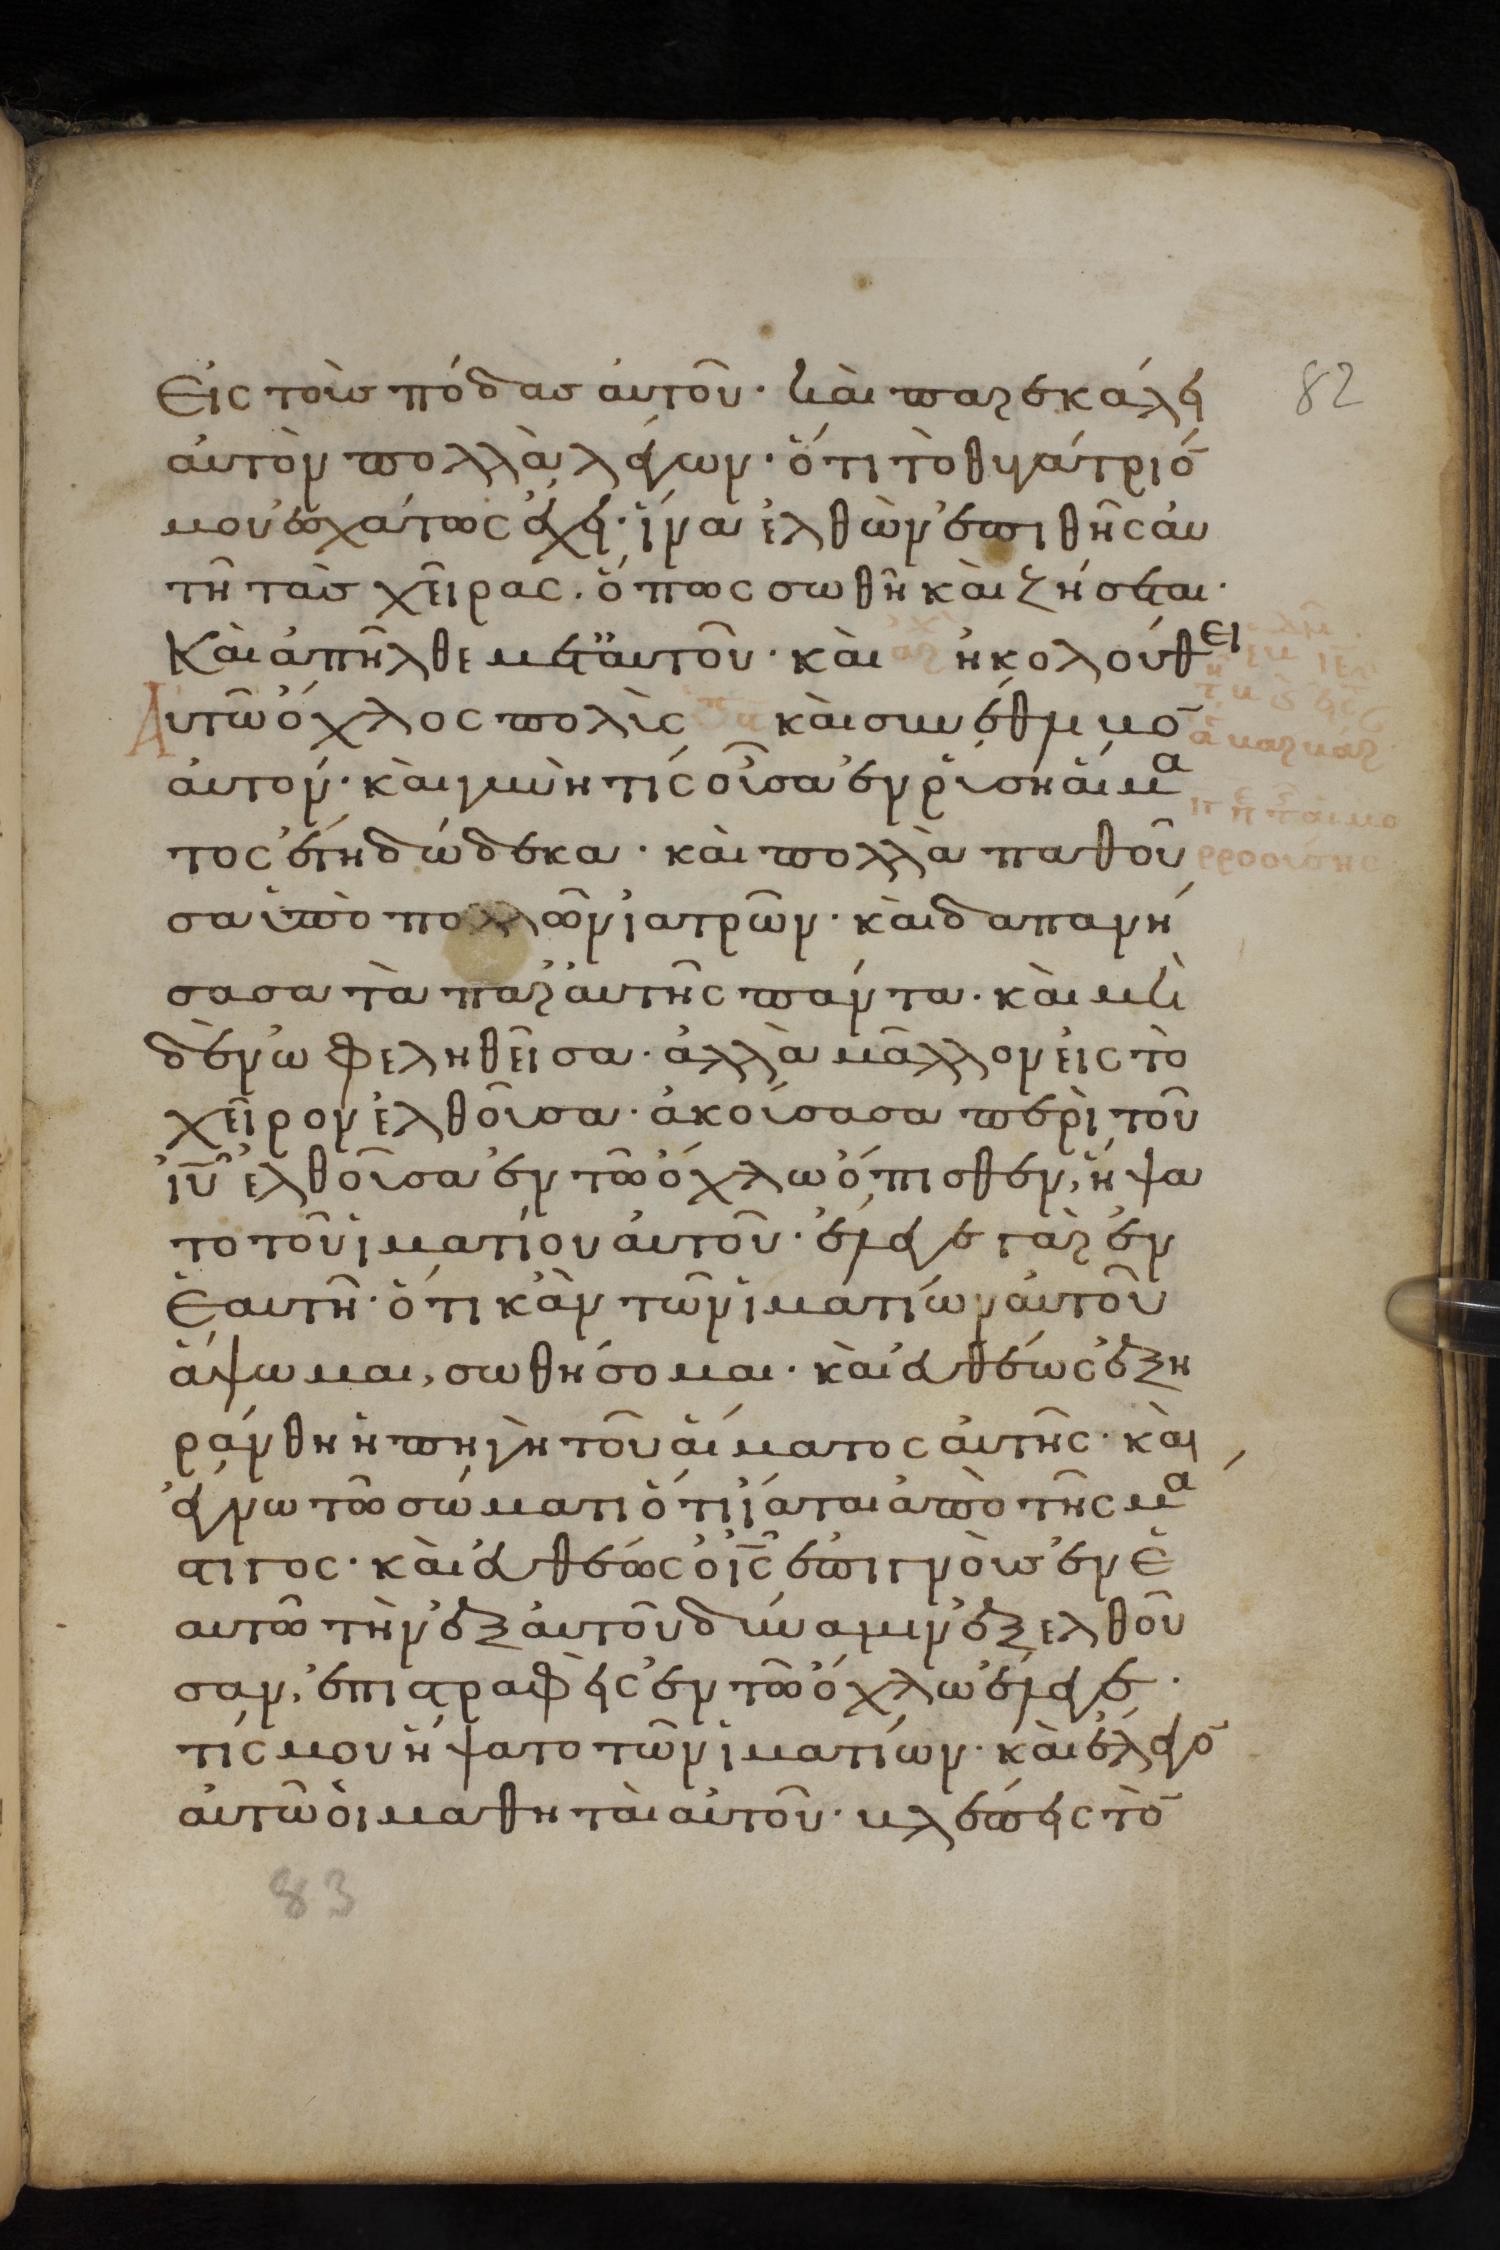 εἰς τοὺς πόδας ἀυτοῦ· καὶ παρεκάλει 82
ἀυτὸν πολλὰ λέγων· ὅτι τὸ θυγάτριό̄
μου ἐσχάτως ἔχει· ἵνα ἐλθὼν ἐπιθῆς ἀυ
τῆ τὰς χεῖρας· ὅπως σωθῆ καὶ ζήσεται·
Καὶ ἀπῆλθε μετ᾽ ἀυτοῦ· καὶ ἠκολούθει
Αυτῶ ὄχλος πολὺς καὶ συνέθλιβο̄
ἀυτόν· καὶ γυνὴ τίς οὖσα ἐν ῥύσει ἅιμα
τος ἔτη δώδεκα· καὶ πολλὰ παθοῦ
σα ὑπὸ πολλῶν ἰατρῶν· καὶ δαπανή
σασα τὰ παρ᾽ ἀυτῆς πάντα· καὶ μη
δὲν ὠφεληθεῖσα· ἀλλὰ μᾶλλον ἐις τὸ
χεῖρον ἐλθοῦσα· ἀκούσασα περὶ τοῦ
ἰῦ ἐλθοῦσα ἐν τῶ ὄχλω ὄπισθεν, ἥψα
το τοῦ ἱματίου ἀυτοῦ· ἔλεγε γὰρ ἐν
ἑαυτῆ· ὅτι κἂν τῶν ἱματίων ἀυτοῦ
ἅψωμαι, σωθήσομαι· καὶ ἐυθέως ἐξη
ράνθη ἡ πηγὴ τοῦ ἅιματος ἀυτῆς· καὶ
ἔγνω τῶ σώματι ὅτι ἴαται ἀπὸ τῆς μά
στιγος· καὶ ἐυθέως ὁ ἰς̄ ἐπιγνοὺς ἐν ἑ
αυτῶ τὴν ἐξ ἀυτοῦ δύναμιν ἐξελθοῦ
σαν, ἐπιστραφεὶς ἐν τῶ ὄχλω ἔλεγε·
τίς μου ἥψατο τῶν ἱματίων· καὶ ἔλεγο̄
ἀυτῶ ὁι μαθηταὶ αὐτοῦ· βλέπεις τὸ̄
83